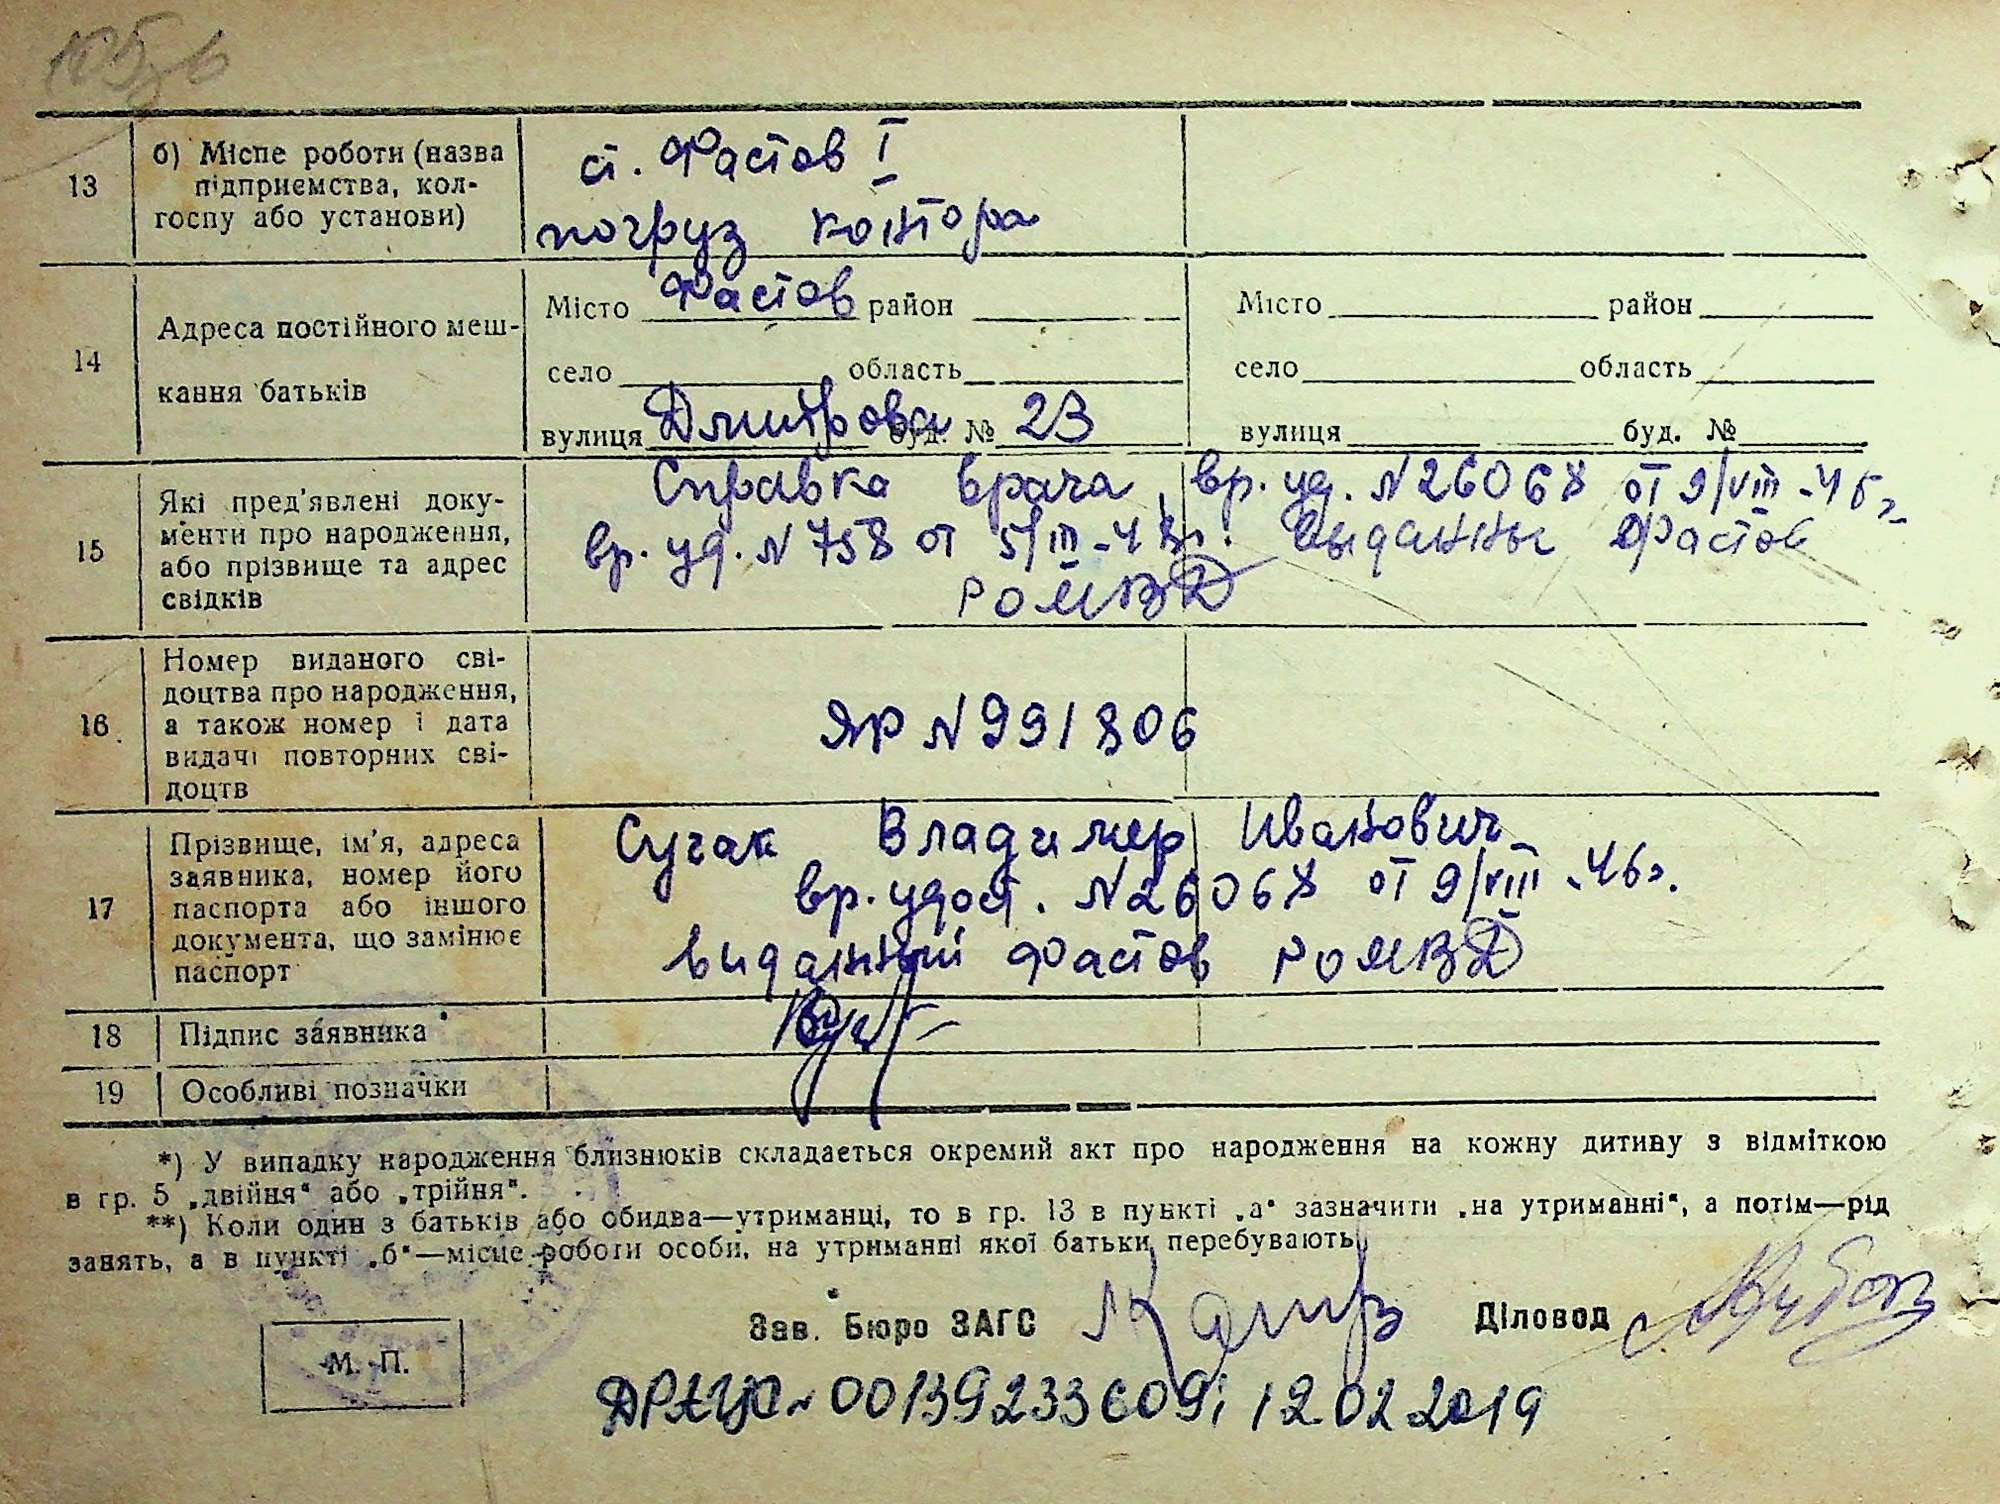 13
б) Місце роботи (назва
підприємства, кол-
госпу або установи)
ст. Фастов I
погруз контора
14
Адреса постійного меш-
кання батьків
Місто Фастов район
село область
вулиця Дмитрова буд. № 23
Місто район
село область
вулиця буд. №
15
Які пред'явлені доку-
менти про народження,
або прізвище та адрес
свідків
Справка врача, вр. уд. N26068 от 9/VIII-46г.
вр. уд. N 758 от 5/III-48г. выданные Фастов
РОМВД
16
Номер виданого сві-
доцтва про народження,
а також номер і дата
видачі повторних сві-
доцтв
ЯР N 991806
17
Прізвище, ім'я, адреса
заявника, номер його
паспорта або іншого
документа, що замінює
паспорт
Сучак Владимер Иванович
вр. удост. N26068 от 9/VIII-46г.
виданный Фастов РОМВД
18
Підпис заявника
19
Особливі позначки
*) У випадку народження близнюків складається окремий акт про народження на кожну дитину з відміткою
в гр. 5 „двійня" або „трійня".
**) Коли один з батьків або обидва—утриманці, то в гр. 13 в пункті „а" зазначити „на утриманні", а потім—рід
занять, а в пункті „б"—місце роботи особи, на утриманні якої батьки перебувають
Зав. Бюро ЗАГС
Діловод
М. П.
ДРАЦС N 00139233609; 12.02.2019